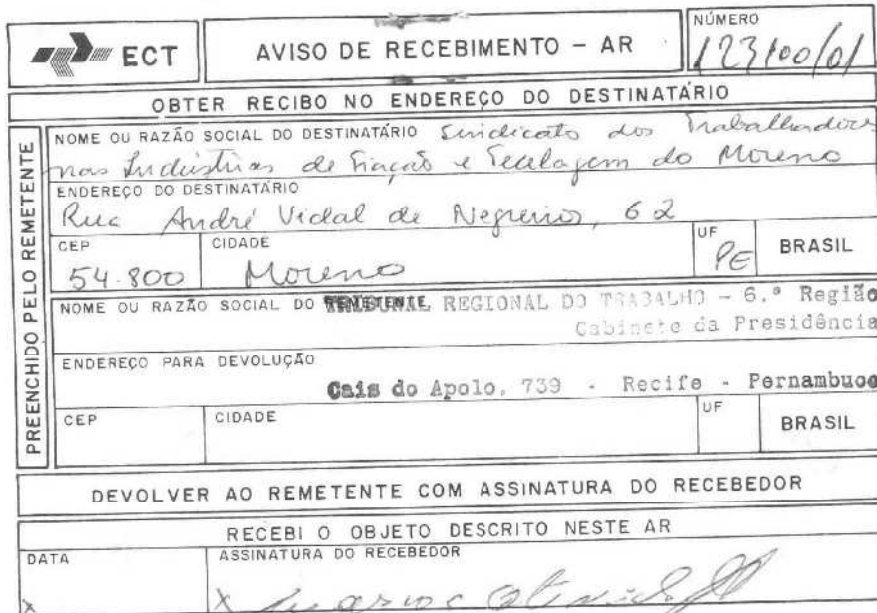 ECT
AVISO DE RECEBIMENTO - AR
NÚMERO
123100/01
OBTER RECIBO NO ENDEREÇO DO DESTINATÁRIO
PREENCHIDO PELO REMETENTE
NOME OU RAZÃO SOCIAL DO DESTINATÁRIO Sindicato dos Trabalhadores
nas Indústrias de Fiação e Tecelagem do Moreno
ENDEREÇO DO DESTINATÁRIO
Rua André Vidal de Negreiros, 62
CEP
54.800
CIDADE
Moreno
UF
PE
BRASIL
NOME OU RAZÃO SOCIAL DO REMETENTE TRIBUNAL REGIONAL DO TRABALHO - 6.ª Região
Gabinete da Presidência
ENDEREÇO PARA DEVOLUÇÃO
Cais do Apolo, 739 - Recife - Pernambuco
CEP
CIDADE
UF
BRASIL
DEVOLVER AO REMETENTE COM ASSINATURA DO RECEBEDOR
RECEBI O OBJETO DESCRITO NESTE AR
DATA
X
ASSINATURA DO RECEBEDOR
X